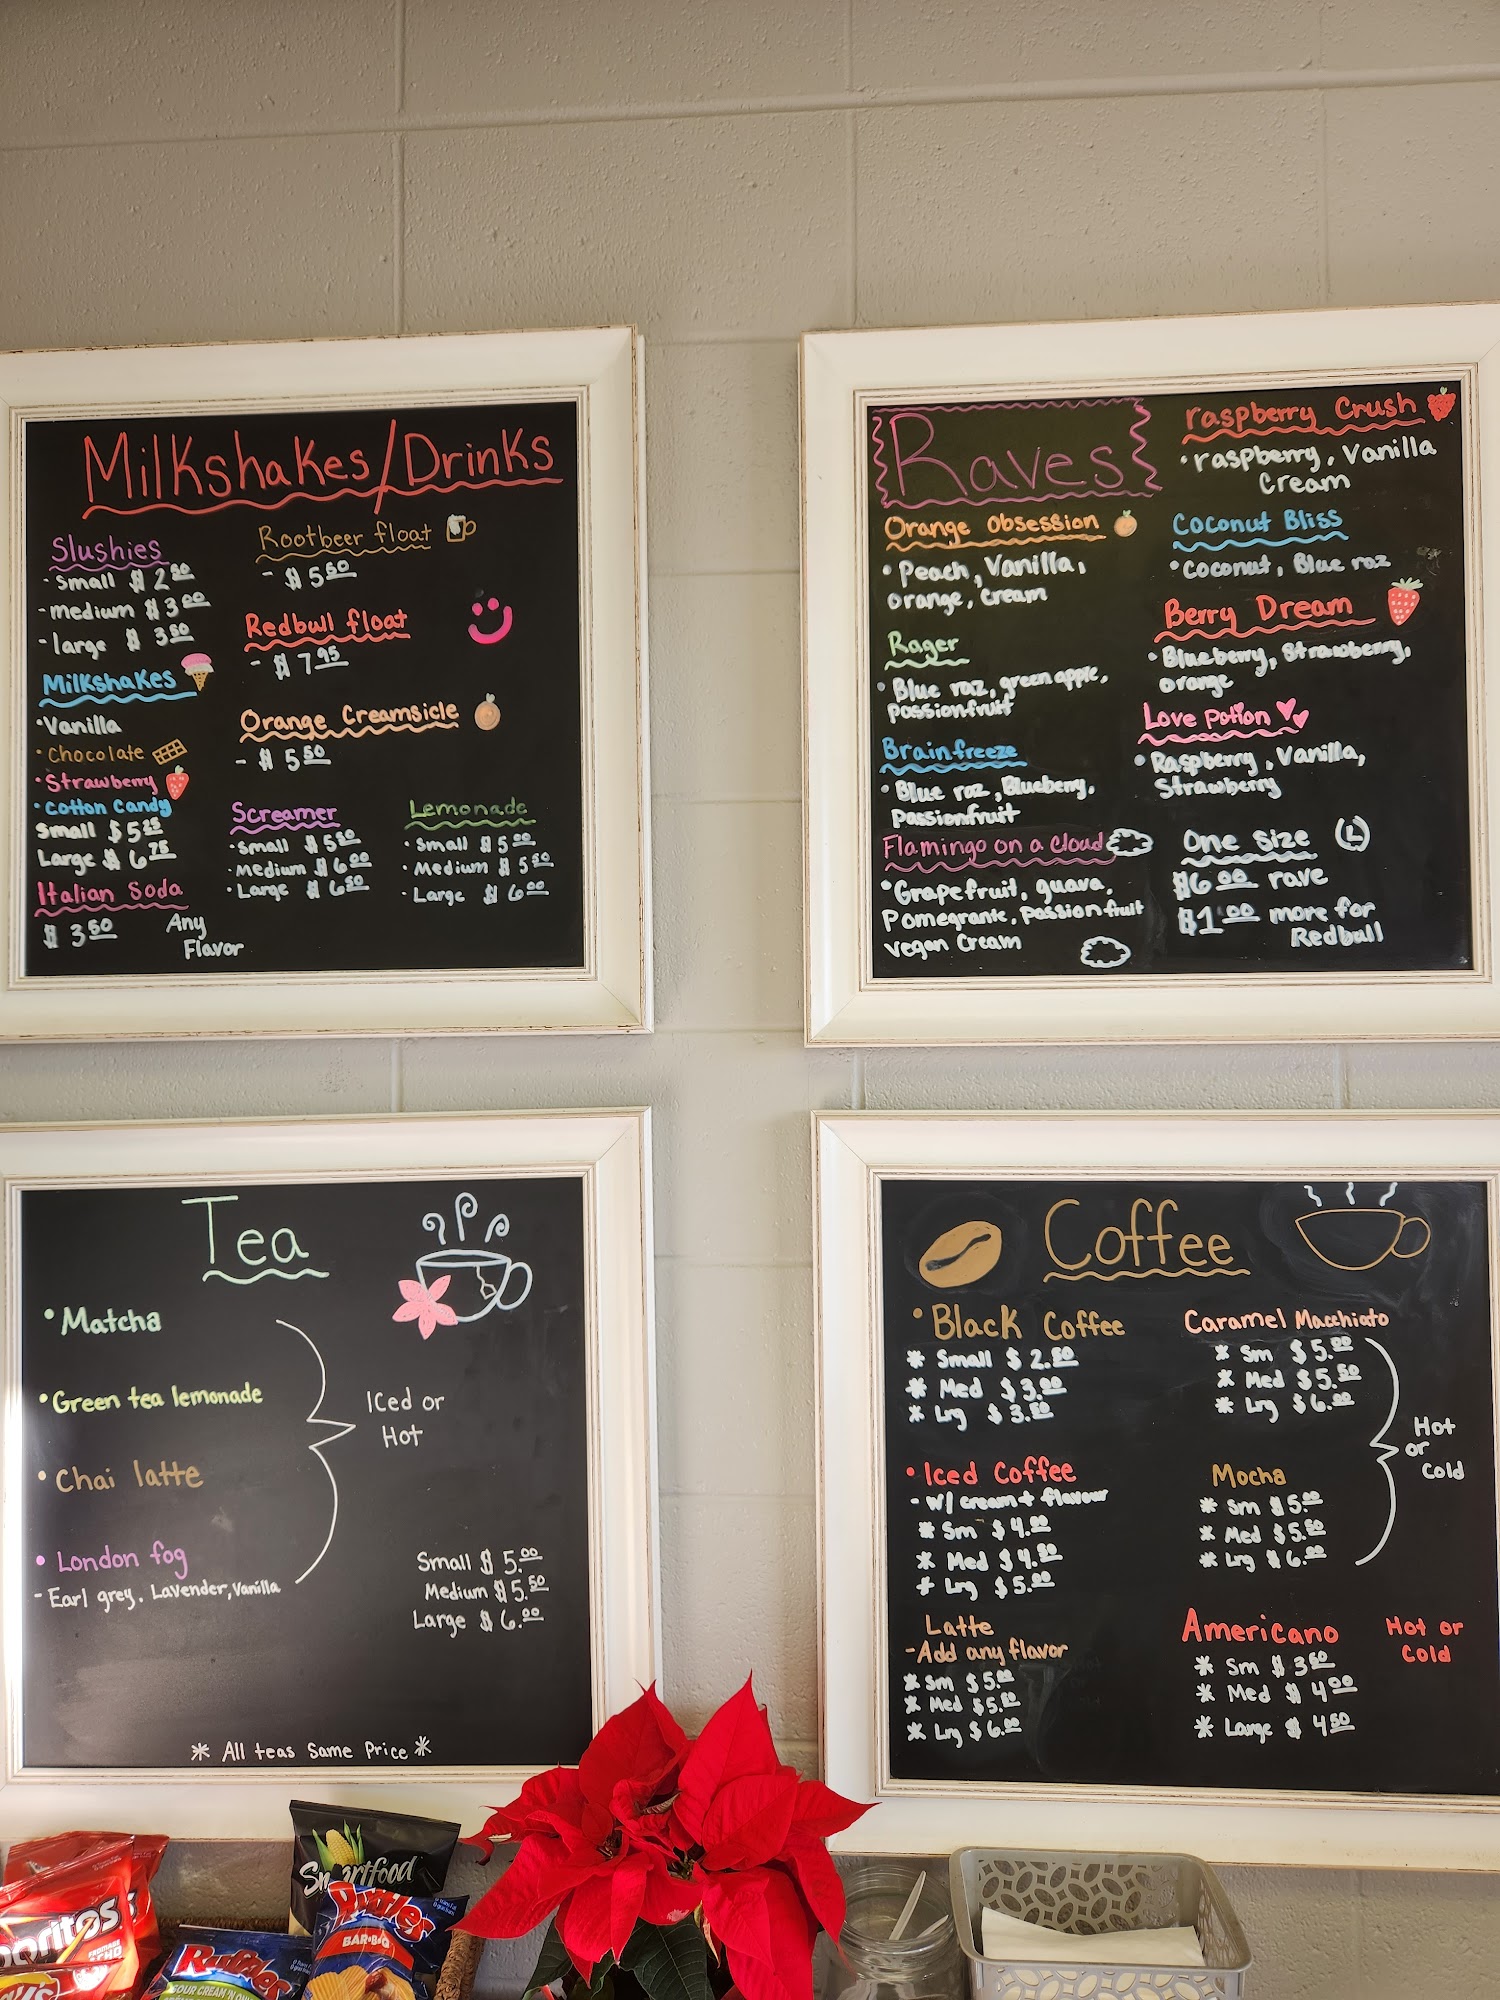 Milkshakes/Drinks
Slushies
- Small $ 2 50
- medium $ 3 00
- large $ 3 50
Milkshakes
• Vanilla
• Chocolate
• Strawberry
• Cotton Candy
Small $ 5 25
Large $ 6 75
Italian Soda
$ 3 50
Any
Flavor
Rootbeer float
- $ 5 50
Redbull float
- $ 7 95
Orange Creamsicle
- $ 5 50
Screamer
• Small $ 5 50
• Medium $ 6 00
• Large $ 6 50
Lemonade
• Small $ 5 00
• Medium $ 5 50
• Large $ 6 00
Raves
Orange Obsession
• Peach, Vanilla,
Orange, Cream
Rager
• Blue raz, green apple,
Passionfruit
Brainfreeze
• Blue raz, Blueberry,
Passionfruit
Flamingo on a Cloud
• Grapefruit, guava,
Pomegrante, Passion fruit
Vegan Cream
raspberry Crush
• raspberry, Vanilla
Cream
Coconut Bliss
• Coconut, Blue raz
Berry Dream
• Blueberry, Strawberry,
Orange
Love Potion
• Raspberry, Vanilla,
Strawberry
One Size (L)
$6 00 rave
$1 00 more for
Redbull
Tea
• Matcha
• Green tea lemonade
• Chai latte
• London fog
- Earl grey, Lavender, Vanilla
Iced or
Hot
Small $ 5.00
Medium $ 5.50
Large $ 6.00
* All teas Same Price *
Coffee
• Black Coffee
* Small $ 2.50
* Med $ 3.00
* Lrg $ 3.50
• Iced Coffee
- W/ cream + flavour
* Sm $ 4.00
* Med $ 4.50
* Lrg $ 5.00
Latte
- Add any flavor
* Sm $ 5.00
* Med $ 5.50
* Lrg $ 6.00
Caramel Macchiato
* Sm $ 5.00
* Med $ 5.50
* Lrg $ 6.00
Mocha
* Sm $ 5.00
* Med $ 5.50
* Lrg $ 6.00
Hot
or
Cold
Americano
* Sm $ 3 50
* Med $ 4 00
* Large $ 4 50
Hot or
Cold
Smartfood
Doritos
Ruffles
BAR·B·Q
Ruffles
SOUR CREAM 'N ONION